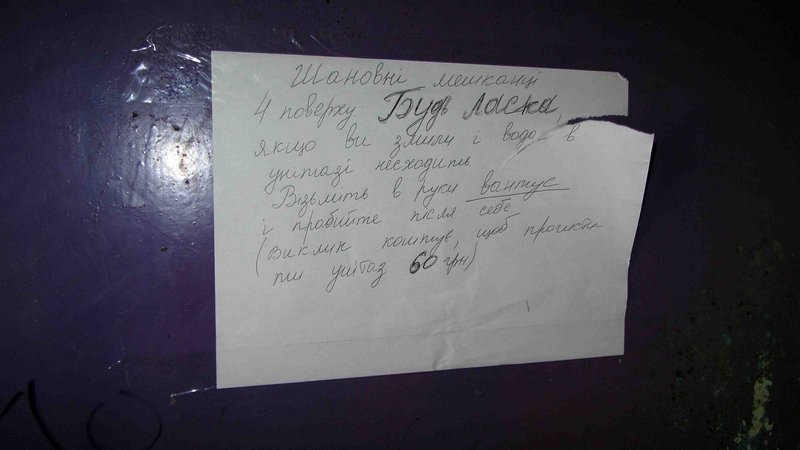 Шановні мешканці
4 поверху Будь Ласка,
якщо ви змили і вода в
унітазі несходить
Візьміть в руки вантус
і пробийте після себе
(Виклик коштує, щоб прочисти
ти унітаз 60 грн)